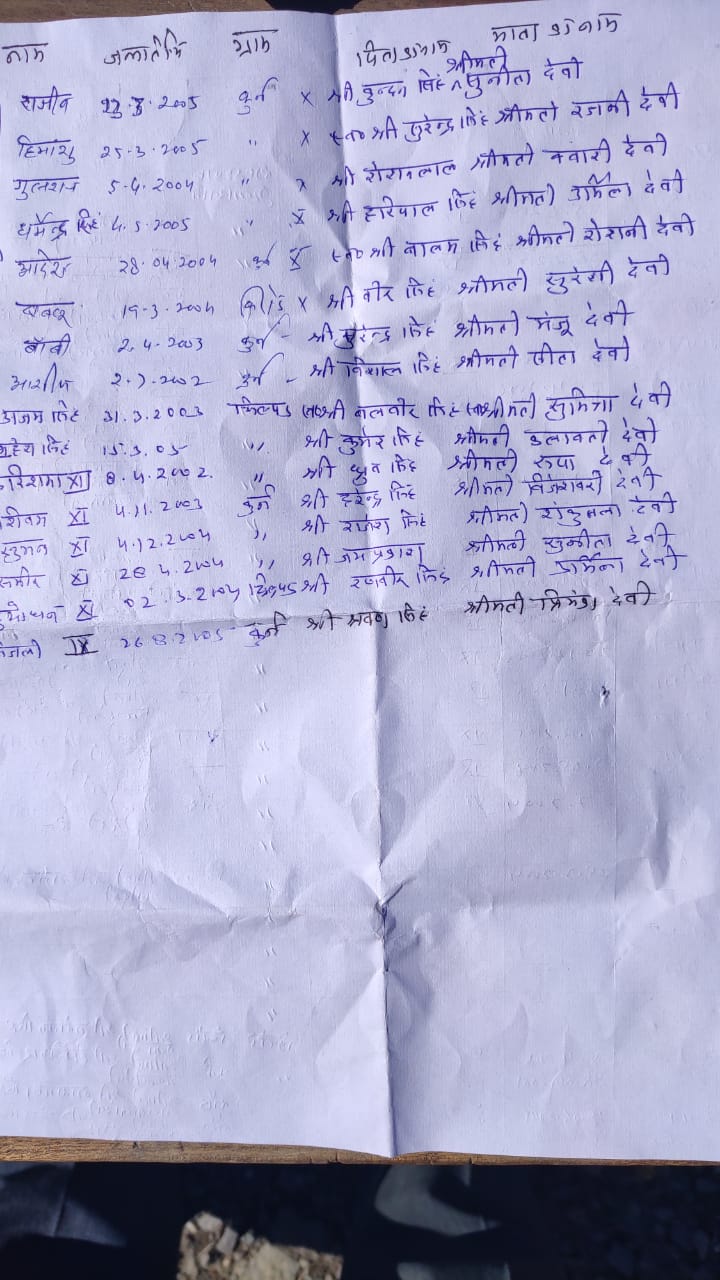 नाम जन्मतिथि ग्राम पिता का नाम माता का नाम
राजीव 3.2005 कुर्न X श्री कुन्दन सिंह श्रीमती सुनीता देवी
हिमांशु 25-3-2005 " X स्व० श्री सुरेन्द्र सिंह श्रीमती रजनी देवी
गुलशन 5.4.2004 " X श्री रोशनलाल श्रीमती क्वारी देवी
धर्मेन्द्र सिंह 4.5.2005 " X श्री हरिपाल सिंह श्रीमती उर्मिला देवी
आदेश 28.04.2004 कुर्न X स्व० श्री बालम सिंह श्रीमती रोशनी देवी
19-3-2004 X श्री वीर सिंह श्रीमती सुरेशी देवी
बॉबी 2.4.2003 कुर्न - श्री सुरेन्द्र सिंह श्रीमती मंजू देवी
आशीष 2.7.2002 कुर्न - श्री विशाल सिंह श्रीमती सीता देवी
अजय सिंह 31.3.2003 स्व० श्री बलवीर सिंह स्व० श्रीमती सुमित्रा देवी
सिंह 15.3.05 " श्री कुमेर सिंह श्रीमती देवी
करिशमा XI 8.4.2002. " श्री ध्रुव सिंह श्रीमती रूपा देवी
शिवम XI 4.11.2003 कुर्न श्री हरेन्द्र सिंह श्रीमती विजेश्वरी देवी
सुमन XI 4.12.2004 " श्री राजेश सिंह श्रीमती शकुन्तला देवी
समीर XI 28 4.2004 " श्री जयप्रकाश श्रीमती सुनीता देवी
XI 02.3.2004 श्री रणवीर सिंह श्रीमती उर्मिला देवी
IX 26.8.2005 कुर्न श्री सिंह श्रीमती देवी